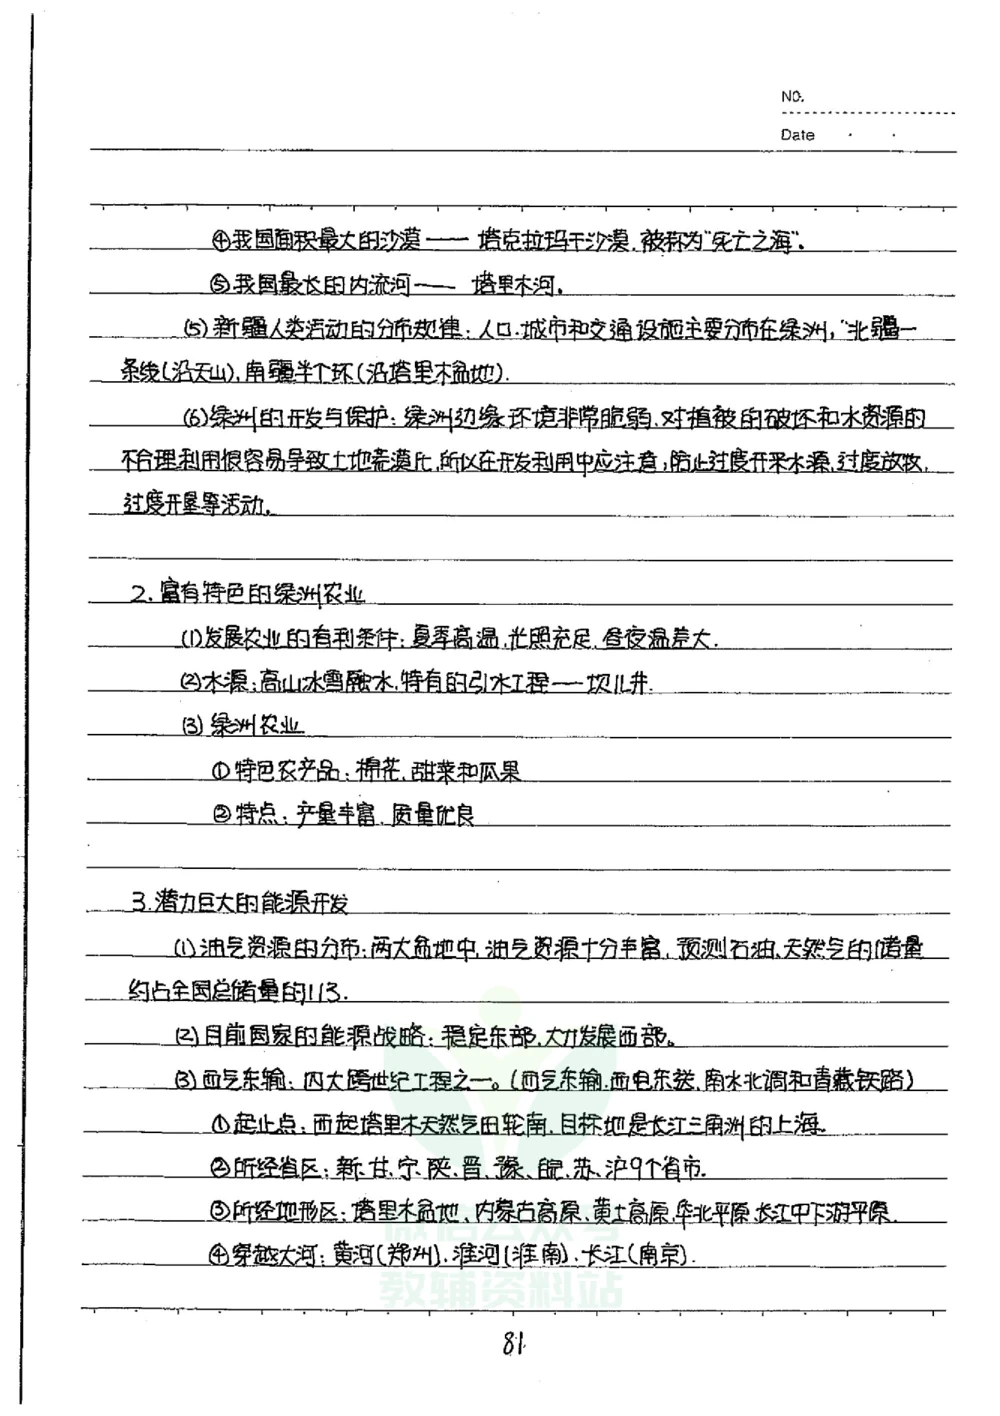 NO.
Date
④我国面积最大的沙漠——塔克拉玛干沙漠,被称为"死亡之海"。
⑤我国最长的内流河——塔里木河。
(5)新疆人类活动的分布规律:人口.城市和交通设施主要分布在绿洲,"北疆一
条线(沿天山),南疆半个环(沿塔里木盆地).
(6)绿洲的开发与保护:绿洲边缘环境非常脆弱,对植被的破坏和水资源的
不合理利用很容易导致土地荒漠化,所以在开发利用中应注意,防止过度开采水源,过度放牧,
过度开垦等活动。
2.富有特色的绿洲农业
(1)发展农业的有利条件:夏季高温,光照充足,昼夜温差大.
(2)水源:高山冰雪融水,特有的引水工程——坎儿井.
(3)绿洲农业
①特色农产品:棉花,甜菜和瓜果
②特点:产量丰富,质量优良
3.潜力巨大的能源开发
(1)油气资源的分布:两大盆地中,油气资源十分丰富,预测石油、天然气的储量
约占全国总储量的1/3.
(2)目前国家的能源战略:稳定东部,大力发展西部。
(3)西气东输:四大跨世纪工程之一。(西气东输.西电东送,南水北调和青藏铁路)
①起止点:西起塔里木天然气田轮南,目标地是长江三角洲的上海.
②所经省区:新、甘、宁、陕、晋、豫、皖、苏、沪9个省市.
③所经地形区:塔里木盆地、内蒙古高原、黄土高原、华北平原、长江中下游平原.
④穿越大河:黄河(郑州)、淮河(淮南)、长江(南京).
微信公众号
教辅资料站
81